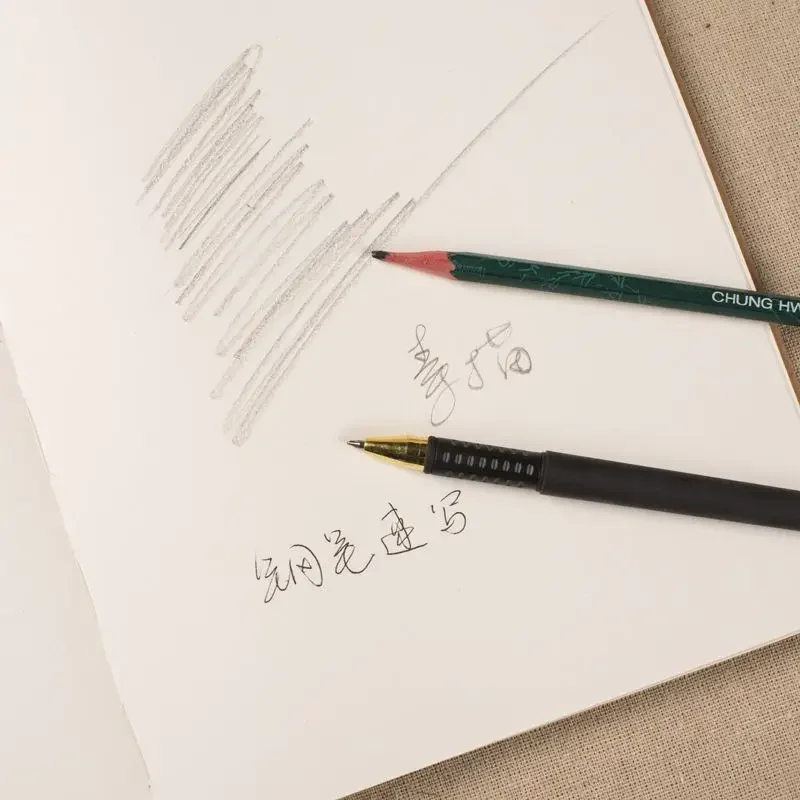 CHUNG HW
素描
钢笔速写